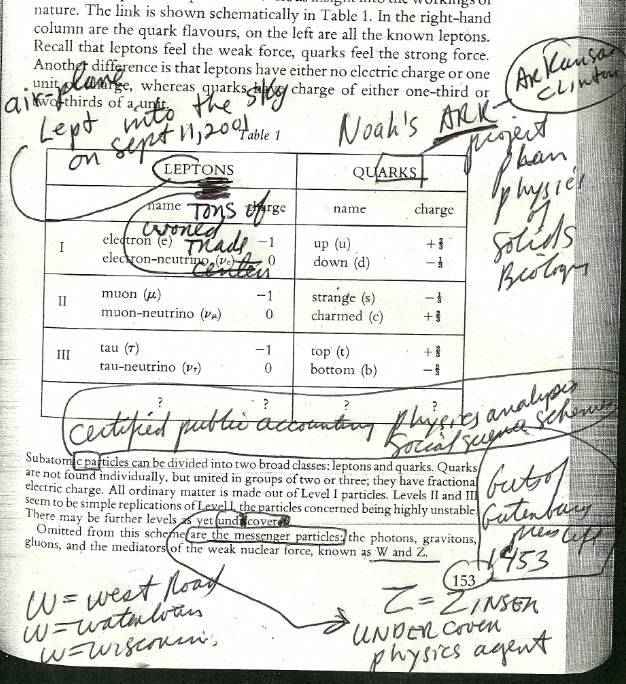 nature. The link is shown schematically in Table 1. In the right-hand
column are the quark flavours, on the left are all the known leptons.
Recall that leptons feel the weak force, quarks feel the strong force.
Another difference is that leptons have either no electric charge or one
unit charge, whereas quarks charge of either one-third or
two-thirds of a unit.
ARKansas
CLinton
airplane
Lept into the sky
on sept 11, 2001
Table 1
Noah's ARK
project
phan
physics
of
solids
Biology
LEPTONS QUARKS
name charge name charge
Tons of
world
Trade
center
I electron (e) −1 up (u) +⅔
electron-neutrino (νe) 0 down (d) −⅓
II muon (μ) −1 strange (s) −⅓
muon-neutrino (νμ) 0 charmed (c) +⅔
III tau (τ) −1 top (t) +⅔
tau-neutrino (ντ) 0 bottom (b) −⅓
? ? ? ?
certified public accounting physics analysis
social science schemes
Subatomic particles can be divided into two broad classes: leptons and quarks. Quarks
are not found individually, but united in groups of two or three; they have fractional
electric charge. All ordinary matter is made out of Level I particles. Levels II and III
seem to be simple replications of Level I, the particles concerned being highly unstable.
There may be further levels as yet undiscovered
Omitted from this scheme are the messenger particles: the photons, gravitons,
gluons, and the mediators of the weak nuclear force, known as W and Z.
Guts of
Gutenburg
press
1453
153
W = west Road
W = waterloo
W = wisconsin
Z = ZINSER
UNDERCOVER
physics agent